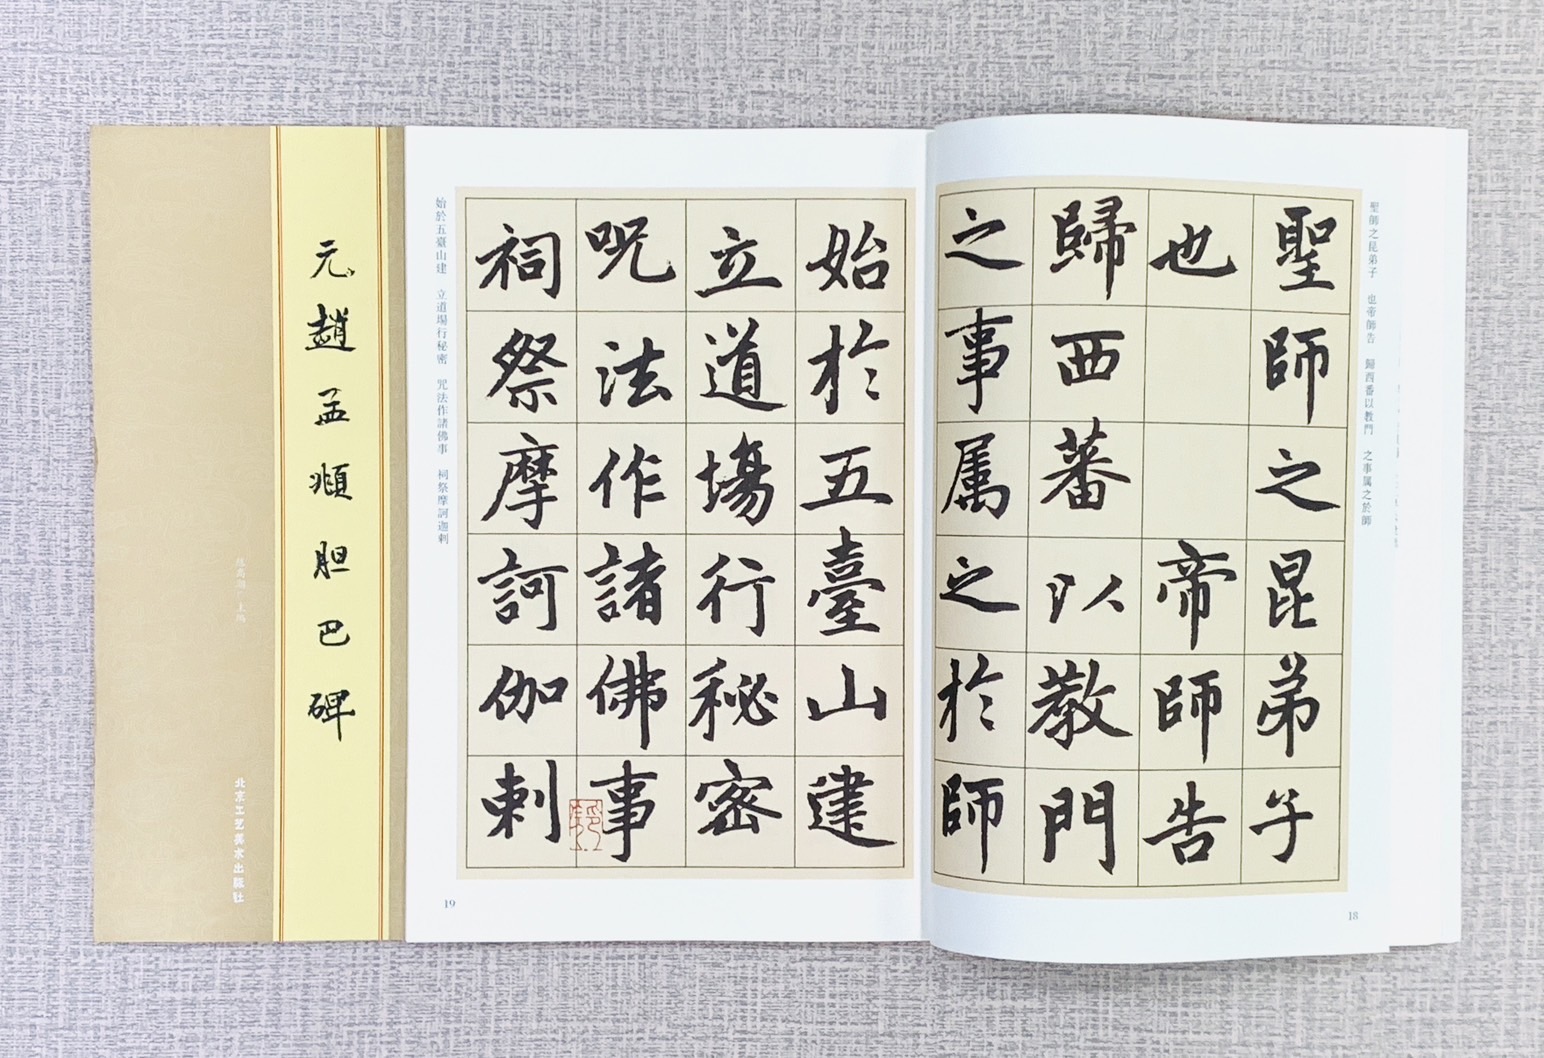 聖師之昆弟子　也帝師告　歸西番以教門　之事属之於師
聖師之昆弟子
也帝師告
歸西蕃以教門
之事属之於師
18
始於五臺山建
立道塲行秘密
呪法作諸佛事
祠祭摩訶伽剌
始於五臺山建　立道場行秘密　咒法作諸佛事　祠祭摩訶迦剌
19
元趙孟頫胆巴碑
北京工艺美术出版社